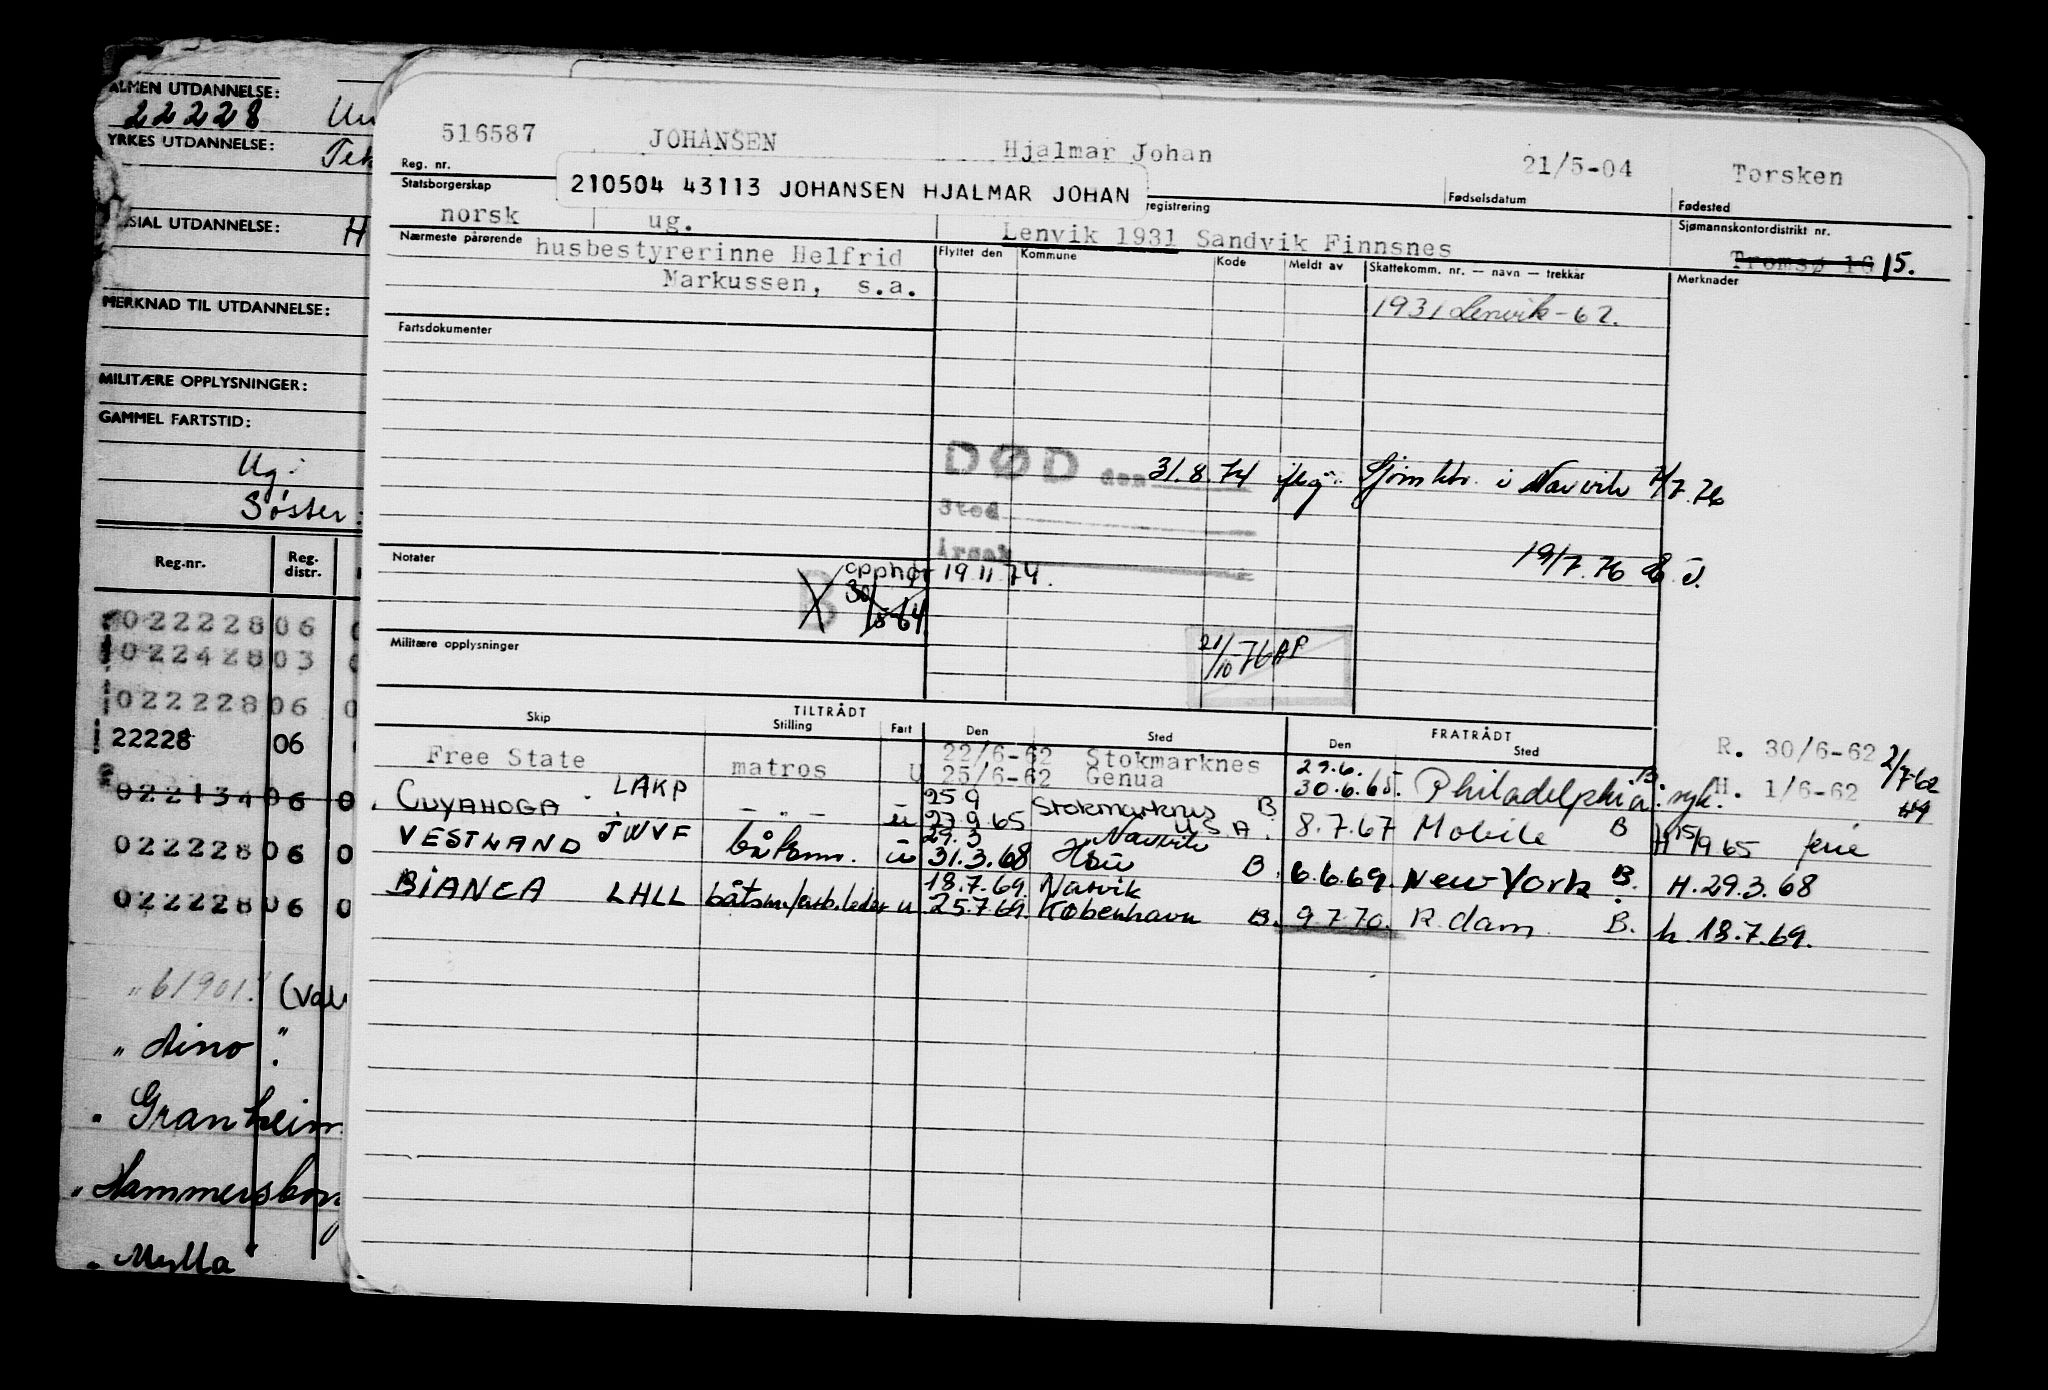 ALMEN UTDANNELSE:
22228
YRKES UTDANNELSE:
SIAL UTDANNELSE: H
MERKNAD TIL UTDANNELSE:
MILITÆRE OPPLYSNINGER:
GAMMEL FARTSTID:
Ug.
Søster:
Reg.nr. Reg. distr.
022228 06 0
022428 03
022228 06 0
22228 06
022134 06 0
022228 06 0
022228 06 0
" 61901.
" Aino "
" Granheim
" Hammersborg
" Mylla
516587 JOHANSEN Hjalmar Johan 21/5-04 Torsken
Reg. nr. registrering Fødselsdatum Fødested
210504 43113 JOHANSEN HJALMAR JOHAN
Statsborgerskap Sjømannskontordistrikt nr.
norsk ug. Lenvik 1931 Sandvik Finnsnes Tromsø 16 15.
Nærmeste pårørende Flyttet den Kommune Kode Meldt av Skattekomm. nr. — navn — trekkår Merknader
husbestyrerinne Helfrid
Markussen, s.a.
1931 Lenvik-62.
Fartsdokumenter
DØD den 31.8.74 iflg. Sjøm ktr. i Narvik 7/7.76
Sted
Årsak
19/7.76
Notater
B opphør 19.11.74.
30/5-64.
Militære opplysninger
21/10-76 AP
TILTRÅDT FRATRÅDT
Skip Stilling Fart Den Sted Den Sted
Free State matros U 22/6-62 Stokmarknes 29.6. R. 30/6-62 2/7-62
25/6-62 Genua 30.6.65. Philadelphia B. syk. H. 1/6-62
CUYAHOGA LAKP - " - u 25.9 Stokmarknes B
27.9.65 U S A. 8.7.67 Mobile B H 15/9 65 ferie
VESTLAND JWVF båtsm. u 29.3 Narvik
31.3.68 B. 6.6.69. New York B. H. 29.3.68
BIANCA LHLL båtsm/arb.leder u 18.7.69. Narvik
25.7.69. København B. 9.7.70. R.dam B. h. 18.7.69.